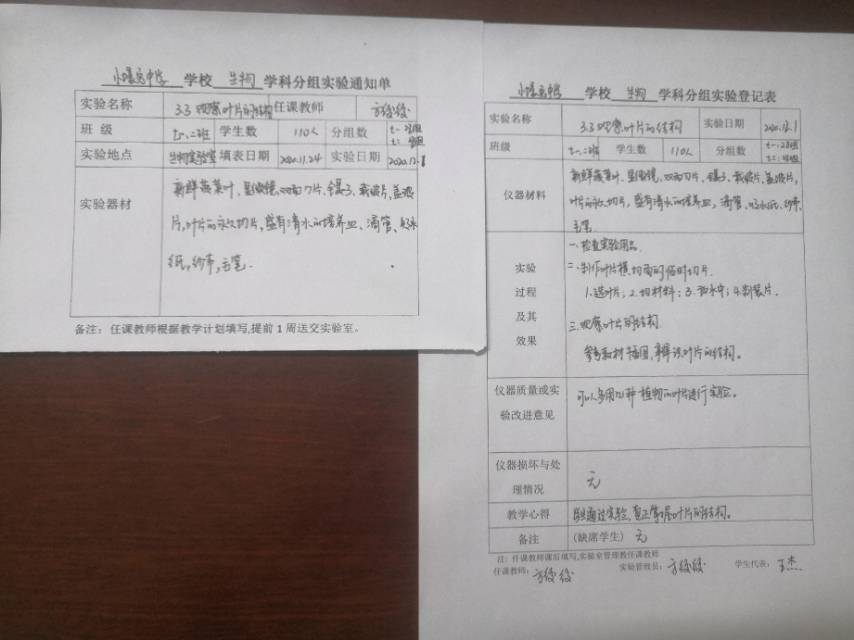 学校 生物 学科分组实验通知单
实验名称 3.3 观察叶片的结构 任课教师 方绫绫
班 级 七一、二班 学生数 110人 分组数
实验地点 生物实验室 填表日期 2020.11.24 实验日期 2020.12.1
实验器材 新鲜蔬菜叶、显微镜、双面刀片、镊子、载玻片、盖玻
片,叶片的永久切片,盛有清水的培养皿、滴管、吸水
纸,纱布,毛笔.
备注: 任课教师根据教学计划填写,提前 1 周送交实验室。
学校 生物 学科分组实验登记表
实验名称 3.3 观察叶片的结构 实验日期 2020.12.1
班级 七一、二班 学生数 110人 分组数
仪器材料 新鲜蔬菜叶、显微镜、双面刀片、镊子、载玻片、盖玻片,
叶片的永久切片,盛有清水的培养皿,滴管、吸水纸、纱布,
毛笔
实验过程及其效果
一、检查实验用品.
二、制作叶片横切面的临时切片.
1.选叶片;2.切材料;3.放水中;4.制装片.
三、观察叶片的结构.
参考教材插图,辨识叶片的结构。
仪器质量或实验改进意见 可以多用几种植物的叶片进行实验。
仪器损坏与处理情况 无
教学心得 通过实验,真正掌握叶片的结构。
备注 (缺席学生) 无
注: 任课教师课后填写,实验室管理教任课教师
任课教师: 方绫绫 实验管理员: 方绫绫 学生代表: 王杰